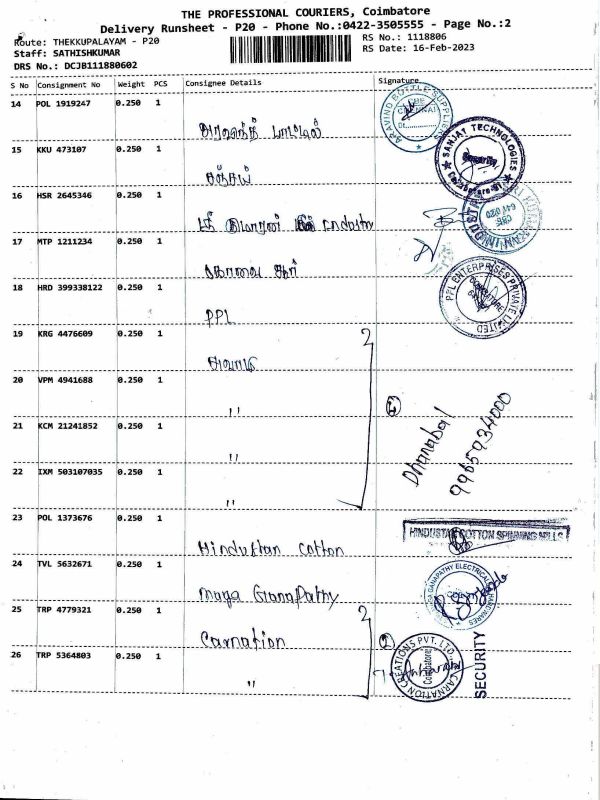 THE PROFESSIONAL COURIERS, Coimbatore
Delivery Runsheet - P20 - Phone No.:0422-3505555 - Page No.:2
Route: THEKKUPALAYAM - P20
RS No.: 1118806
Staff: SATHISHKUMAR
RS Date: 16-Feb-2023
DRS No.: DCJB111880602
S No Consignment No Weight PCS Consignee Details Signature
14 POL 1919247 0.250 1
ARAVIND BOTTLE SUPPLIERS
15 KKU 473107 0.250 1
சஞ்சய்
SANJAY TECHNOLOGIES
16 HSR 2645346 0.250 1
ஸ்ரீ குமரன் Industry
17 MTP 1211234 0.250 1
கோவை
18 HRD 399338122 0.250 1
PPL
PFL ENTERPRISES PRIVATE LIMITED
19 KRG 4476609 0.250 1
20 VPM 4941688 0.250 1
"
21 KCM 21241852 0.250 1
"
Dhanabal
22 IXM 503107035 0.250 1
"
23 POL 1373676 0.250 1
Hindusthan Cotton
HINDUSTAN COTTON SPINNING MILLS
24 TVL 5632671 0.250 1
Maga GanaPathy
GANAPATHY ELECTRICAL
25 TRP 4779321 0.250 1
Carnation
26 TRP 5364803 0.250 1
"
CARNATION CREATIONS PVT. LTD.
Coimbatore
SECURITY